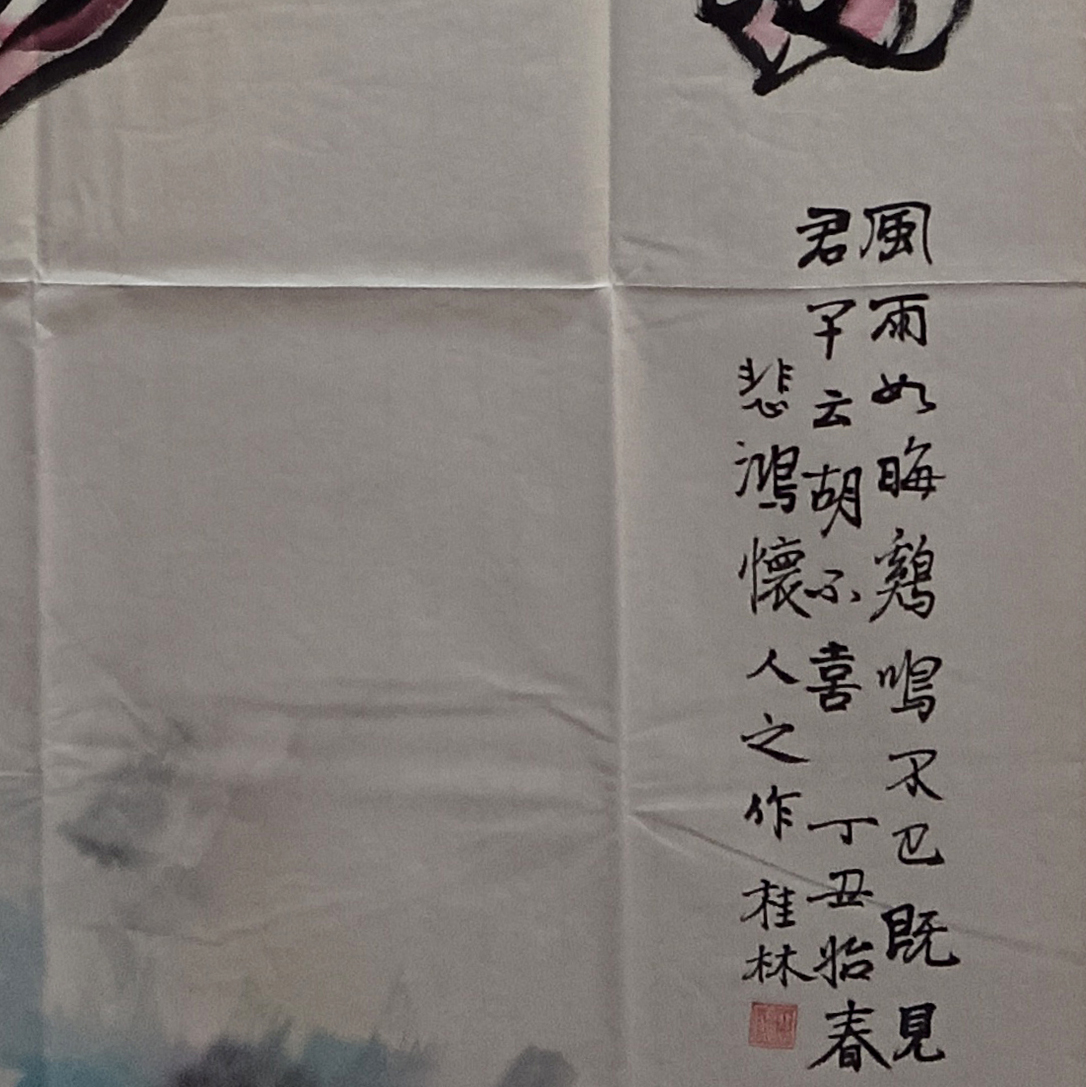 風雨如晦鷄鳴不已既見
君子云胡不喜 丁丑始春
悲鴻懷人之作 桂林